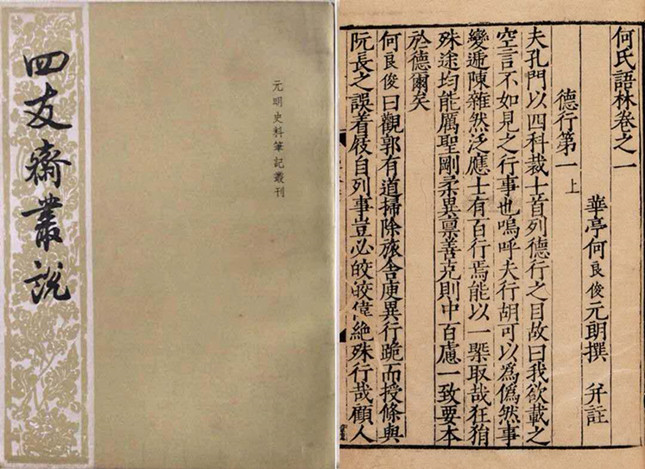 四友齋叢說
元明史料筆記叢刊
何氏語林卷之一
華亭何良俊元朗撰 并註
德行第一上
夫孔門以四科裁士首列德行之目故曰我欲載之
空言不如見之行事也嗚呼夫行胡可以為僞然事
變遞陳雜然泛應士有百行焉能以一槩取哉狂狷
殊途均能厲聖剛柔異稟善克則中百慮一致要本
於德爾矣
何良俊曰觀郭有道掃除旅舍庾異行跪而授條與
阮長之誤着屐自列事豈必皎皎偉絶殊行哉顧人